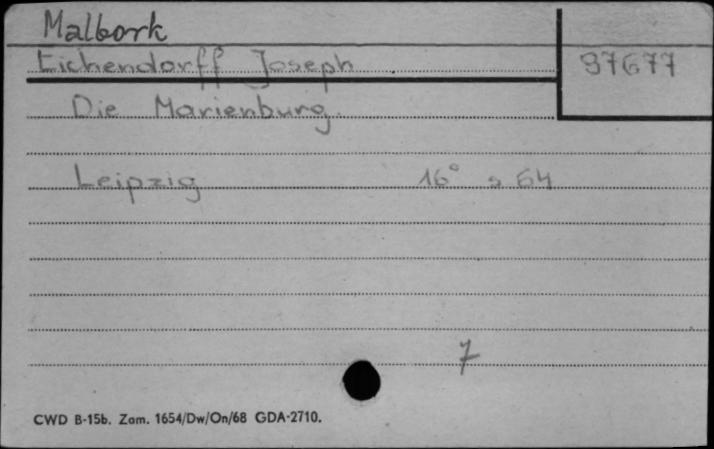 Malbork
Eichendorff Joseph 97677
Die Marienburg.
Leipzig 16° s 64
7
CWD B-15b. Zam. 1654/Dw/On/68 GDA-2710.